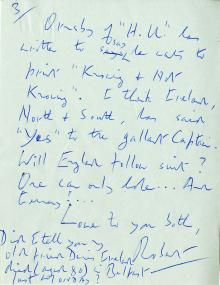 3/
Ormsby of "H.U." has
written to say he wants to
print "Knowing & Not
Knowing". I think Ireland,
North & South, has said
"yes" to the gallant Captain.
Will England follow suit?
One can only hope... And
Love to you both,
Robert
Did I tell you my
old friend Denis Ireland
died (aged 80) in Belfast
last